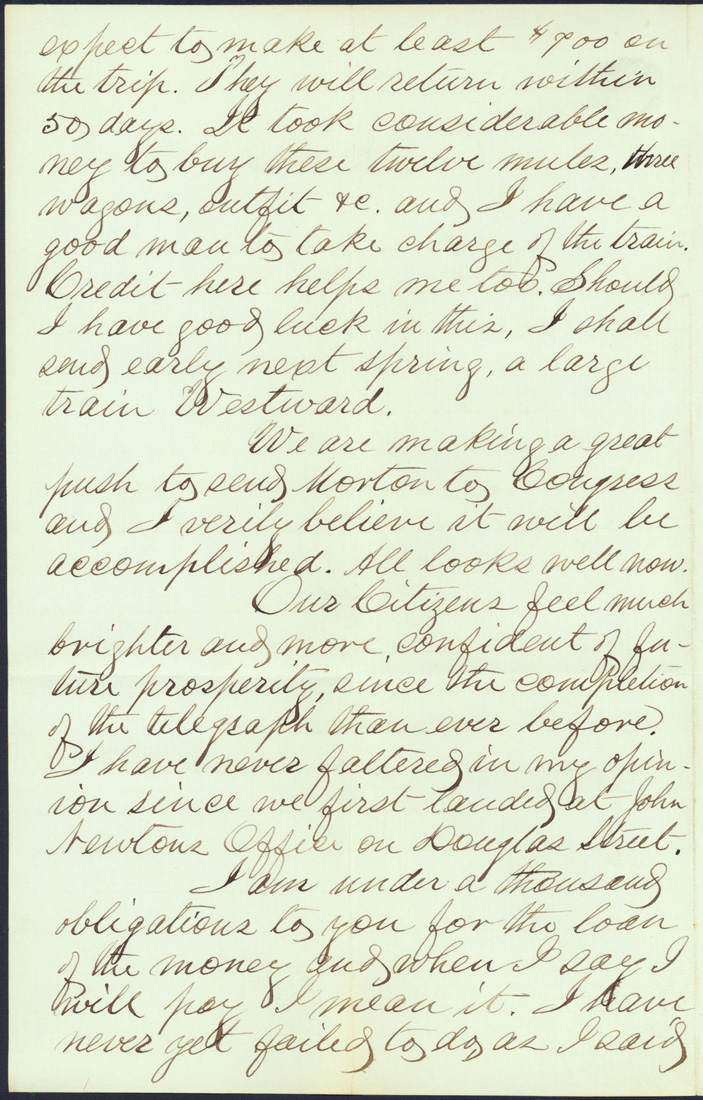 expect to make at least $700 on
the trip. They will return within
50 days. It took considerable mo-
ney to buy these twelve mules, three
wagons, outfit &c. and I have a
good man to take charge of the train.
Credit here helps me too. Should
I have good luck in this, I shall
send early next spring, a large
train Westward.
We are making a great
push to send Morton to Congress
and I verily believe it will be
accomplished. All looks well now.
Our Citizens feel much
brighter and more confident of fu-
ture prosperity, since the completion
of the telegraph than ever before.
I have never faltered in my opin-
ion since we first landed at John
Newtons Office on Douglas Street.
I am under a thousand
obligations to you for the loan
of the money and when I say I
will pay I mean it. I have
never yet failed to do, as I said